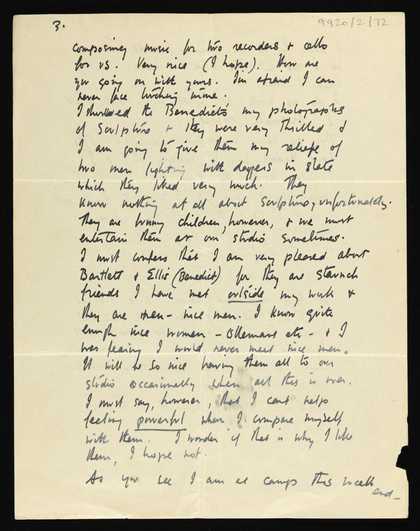 3.
9920/2/72
composing music for two recorders & cello
for us. Very nice (I hope). How are
you going on with yours. I'm afraid I can
never face mine.
I showed the Benedicts my photographs
of sculpture & they were very thrilled &
I am going to give them my relief of
two men fighting with daggers in slate
which they liked very much. They
know nothing at all about sculpture, unfortunately.
They are funny children, however, & we must
entertain them at our studio sometimes.
I must confess that I am very pleased about
Bartlett & Ellis (Benedict) for they are staunch
friends I have met outside my work &
they are men - nice men. I know quite
enough nice women - Ollemans etc - & I
was fearing I would never meet nice men.
It will be so nice having them all to our
studio occasionally when all this is over.
I must say, however, that I can't help
feeling powerful when I compare myself
with them. I wonder if that is why I like
them, I hope not.
As you see I am at camp this week
end -